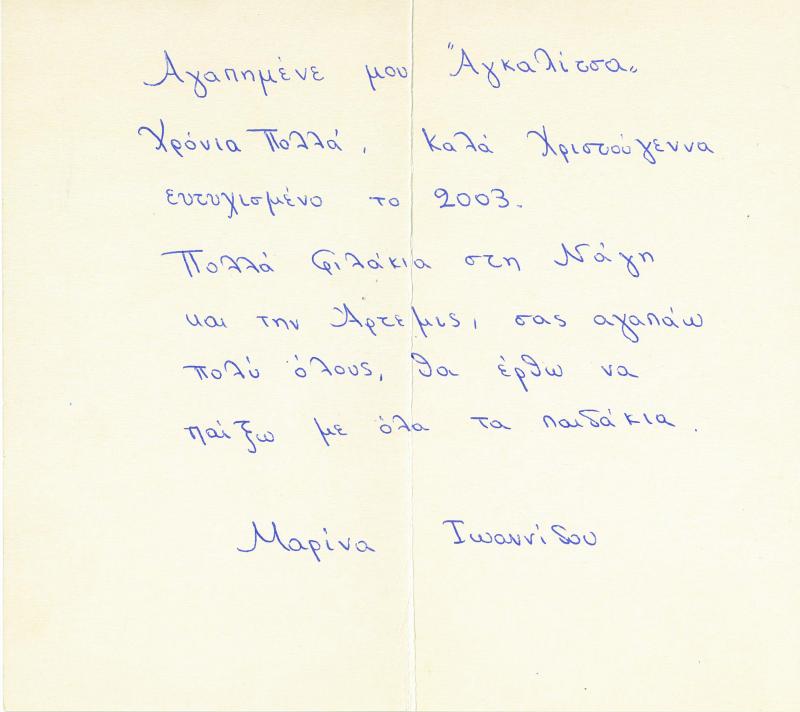 Αγαπημένε μου "Αγκαλίτσα"
Χρόνια Πολλά, καλά Χριστούγεννα
ευτυχισμένο το 2003.
Πολλά φιλάκια στη Νάγη
και την Άρτεμις, σας αγαπάω
πολύ όλους, θα έρθω να
παίξω με όλα τα παιδάκια.
Μαρίνα Ιωαννίδου